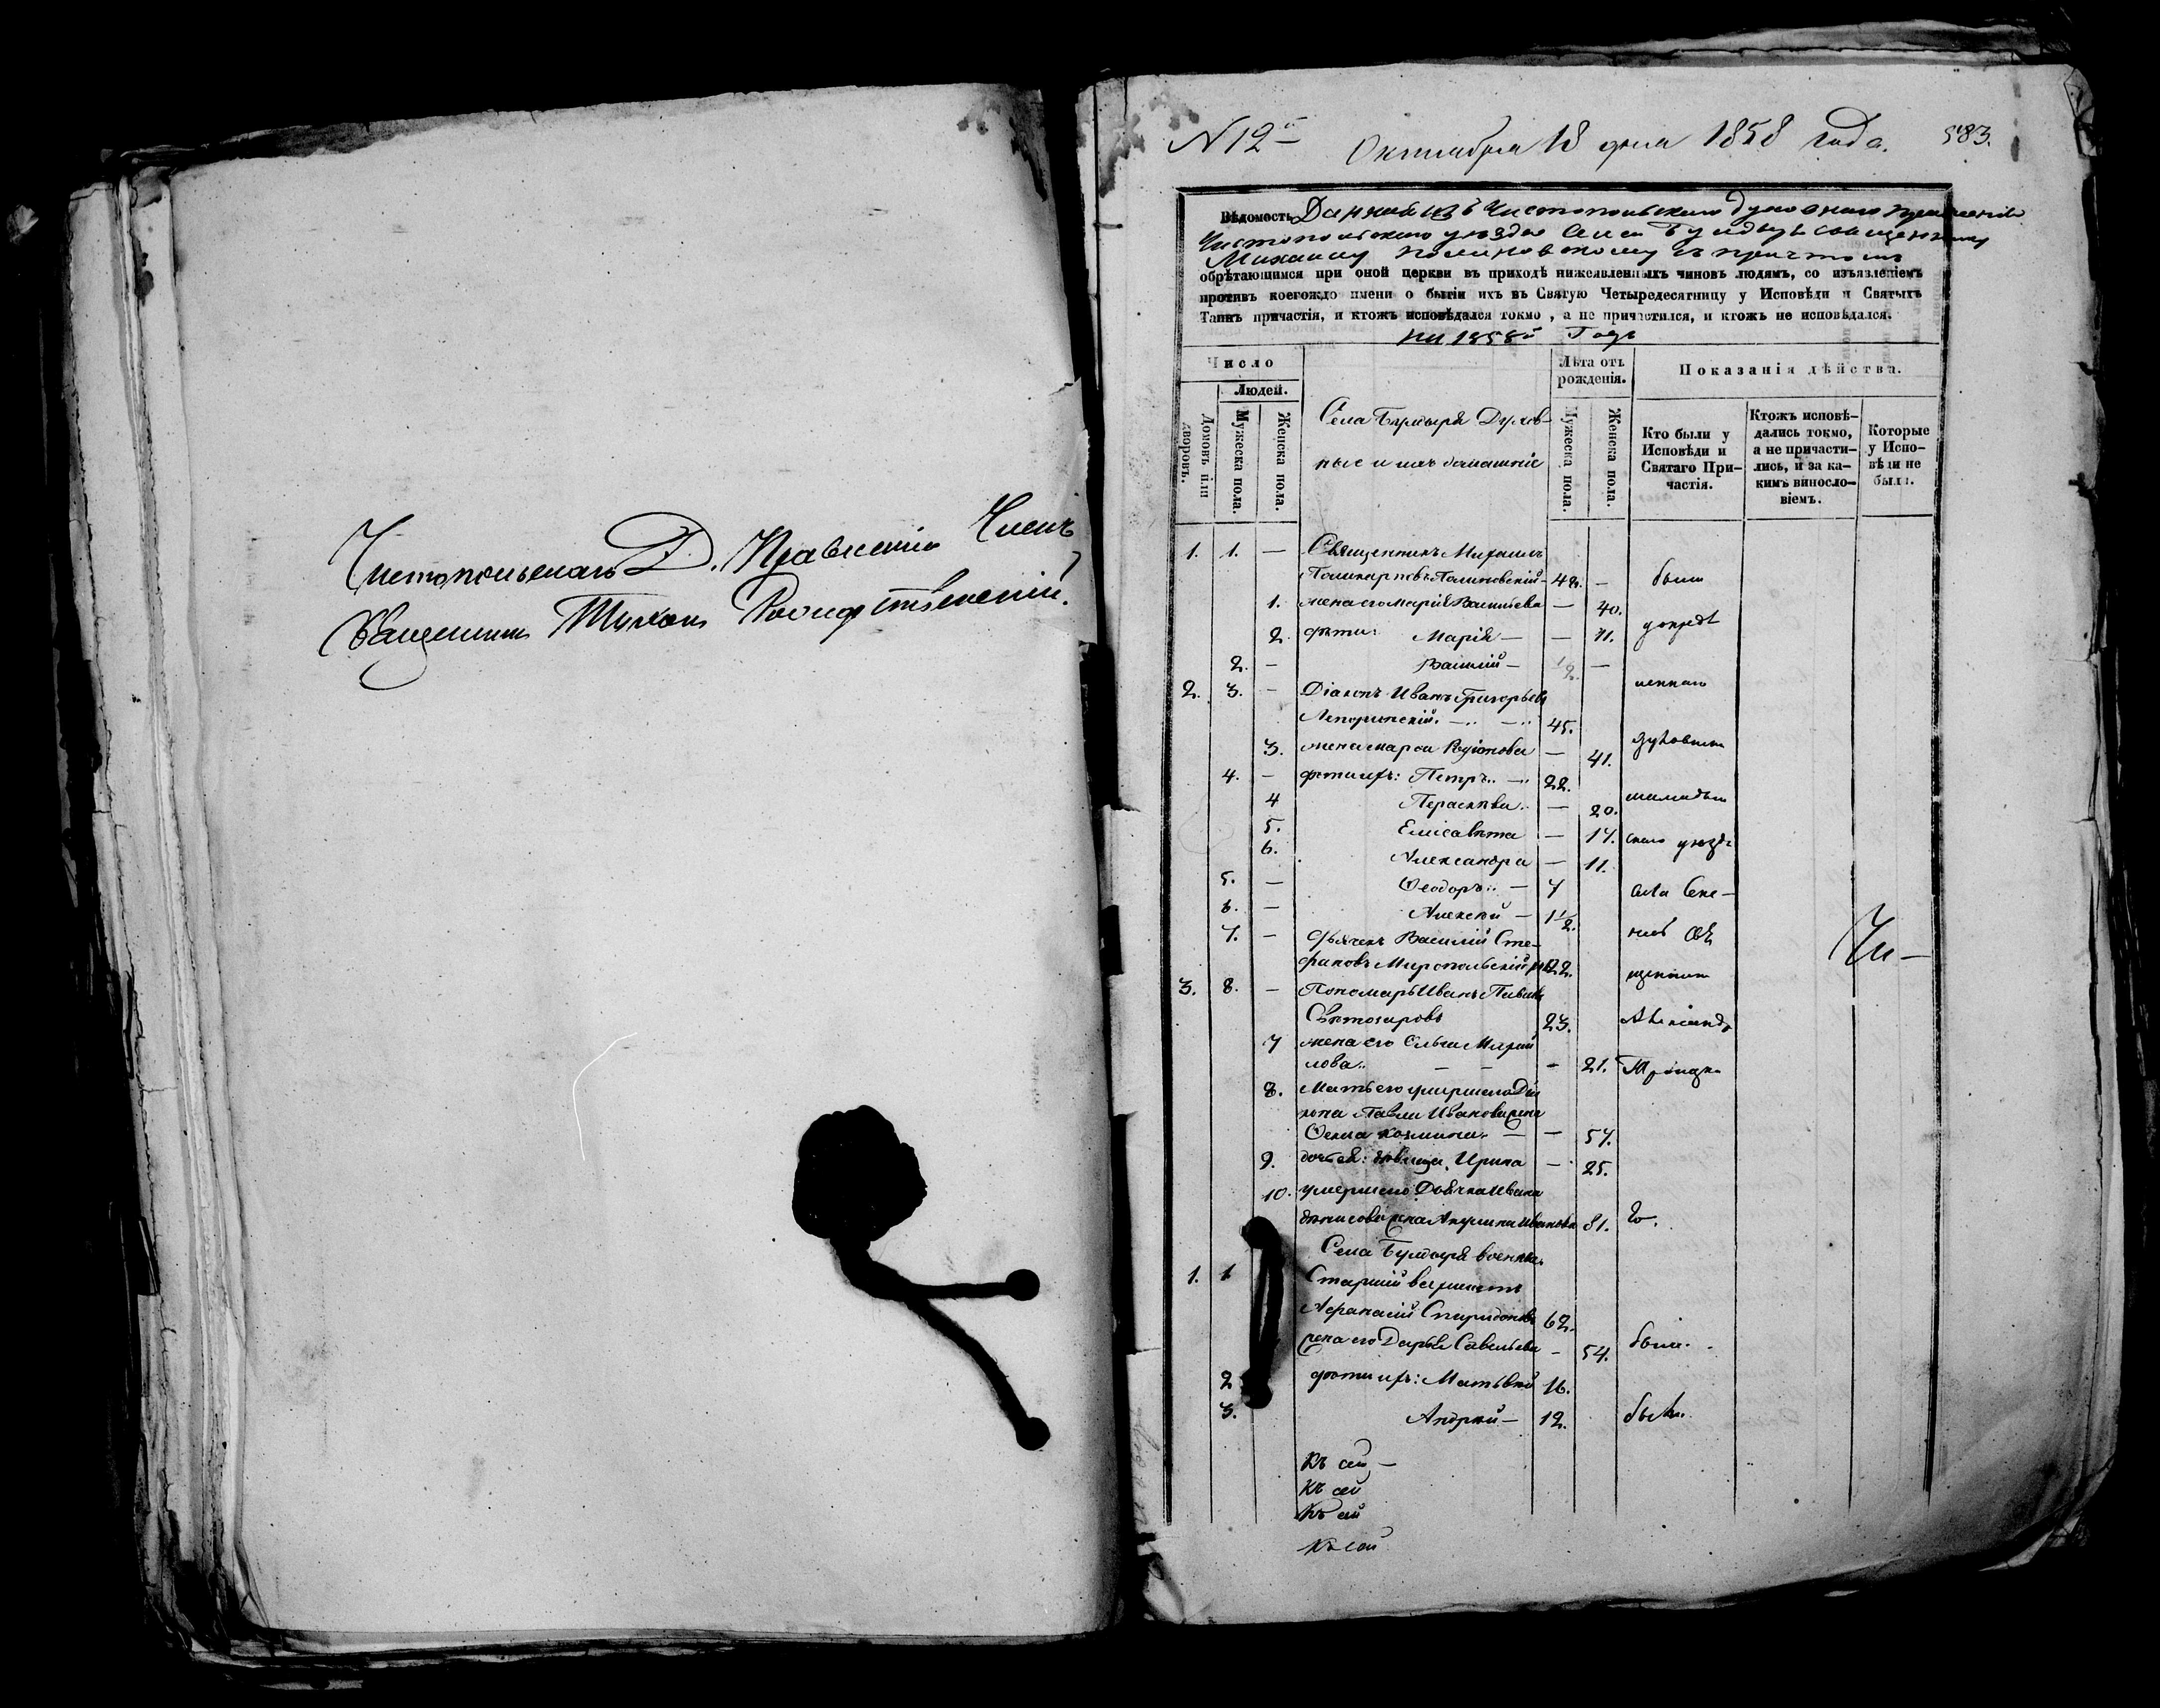 Чистопольскаго Д. Правленія Членъ
Священникъ Тихонъ Рождественскій.
N 12й
Октября 18 дня 1858 года.
583.
Вѣдомость Данная изъ Чистопольскаго Духовнаго Правленія
Чистопольскаго уѣзда села Булдыря священнику
Михаилу Полиновскому съ причтомъ
обрѣтающимся при оной церкви въ приходѣ нижеявленныхъ чиновъ людямъ, со изъявленіемъ
противъ коегождо имени о бытіи ихъ въ Святую Четыредесятницу у Исповѣди и Святыхъ
Таинъ причастія, и ктожъ исповѣдался токмо, а не причастился, и ктожъ не исповѣдался.
на 1858й Годъ
Число
Людей.
Домовъ или дворовъ.
Мужеска пола.
Женска пола.
Села Булдыря Духов-
ные и ихъ домашніе
Лѣта отъ
рожденія.
Мужеска пола.
Женска пола.
Показанія дѣйства.
Кто были у
Исповѣди и
Святаго При-
частія.
Ктожъ исповѣ-
дались токмо,
а не причасти-
лись, и за ка-
кимъ винословіемъ.
Которые
у Испо-
вѣди не
были.
1. 1. — Священникъ Михаилъ
Поликарповъ Полиновскій — 48. — были
1. жена его Марія Васильева — 40.
2. дѣти: Марія — — 11.
2. — Василій — 1/2. —
2. 3. — Діаконъ Иванъ Григорьевъ
Лепоринскій. 45. духовника
3. жена Марфа Родіонова — 41.
4. — дѣти ихъ: Петръ — 22.
4 Параскева — 20.
5. Елисавета — 17. скаго уѣзда
6. Александра — 11.
5. — Ѳеодоръ — 7 села
6. — Алексѣй — 1 1/2.
7. — Дьячекъ Василій Сте-
фановъ Миропольскій 22.
3. 8. — Пономарь Иванъ Павловъ
Свѣтозаровъ 23.
7 жена его Ольга
лова — — - 21.
8. Мать его умершаго Діа
кона Павла Иванова жена
Козмина — — 57.
9. дочь ея: дѣвица Ирина — 25.
10. умершаго Дьячка Ивана
Денисова жена Акулина Иванова 81.
Села Булдыря военные
1. 1 Старшій вахмистръ
Афанасій Спиридоновъ 62.
жена его Дарья Савельева — 54. были.
2 дѣти ихъ: Матвѣй 16.
3. Андрей — 12. были.
Къ сей —
Къ сей
Къ сей
Къ сей
Чи —